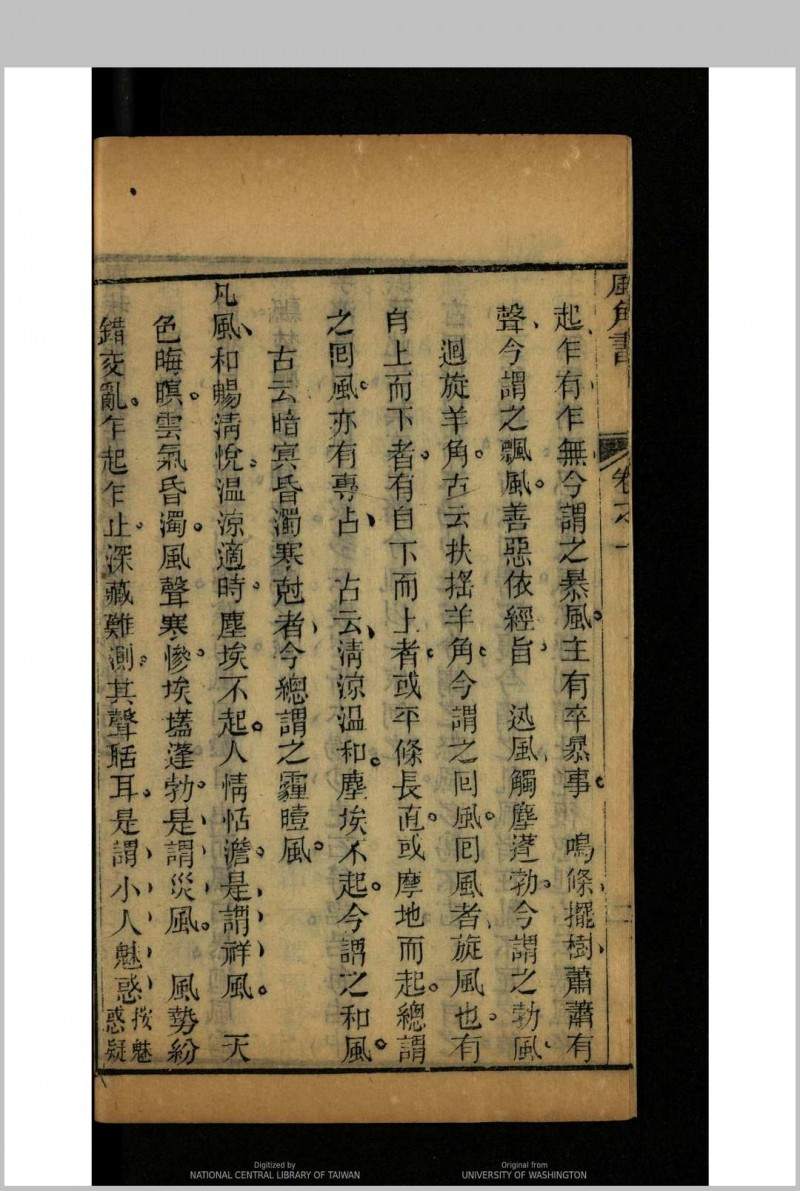 風角書 卷之一
起乍有乍無今謂之暴風。主有卒暴事。 鳴條擺樹蕭蕭有
聲、今謂之飄風。善惡依經旨、 迅風觸塵蓬勃、今謂之勃風、
迴旋羊角。古云扶搖羊角。今謂之回風。回風者旋風也、有
自上而下者。有自下而上者。或平條長直。或摩地而起。總謂
之回風。亦有專占、 古云、清涼温和。塵埃不起。今謂之和風。
古云暗㝠昏濁寒尅者、今總謂之霾曀風。
凡風、和暢清悅。温涼適時。塵埃不起。人情恬澹。是謂祥風。 天
色晦暝。雲氣昏濁。風聲寒慘。埃壒蓬勃。是謂災風。 風勢紛
錯交亂。乍起乍止。深藏難測。其聲聒耳。是謂小人魅惑 按魅惑疑
Digitized by NATIONAL CENTRAL LIBRARY OF TAIWAN
Original from UNIVERSITY OF WASHINGTON